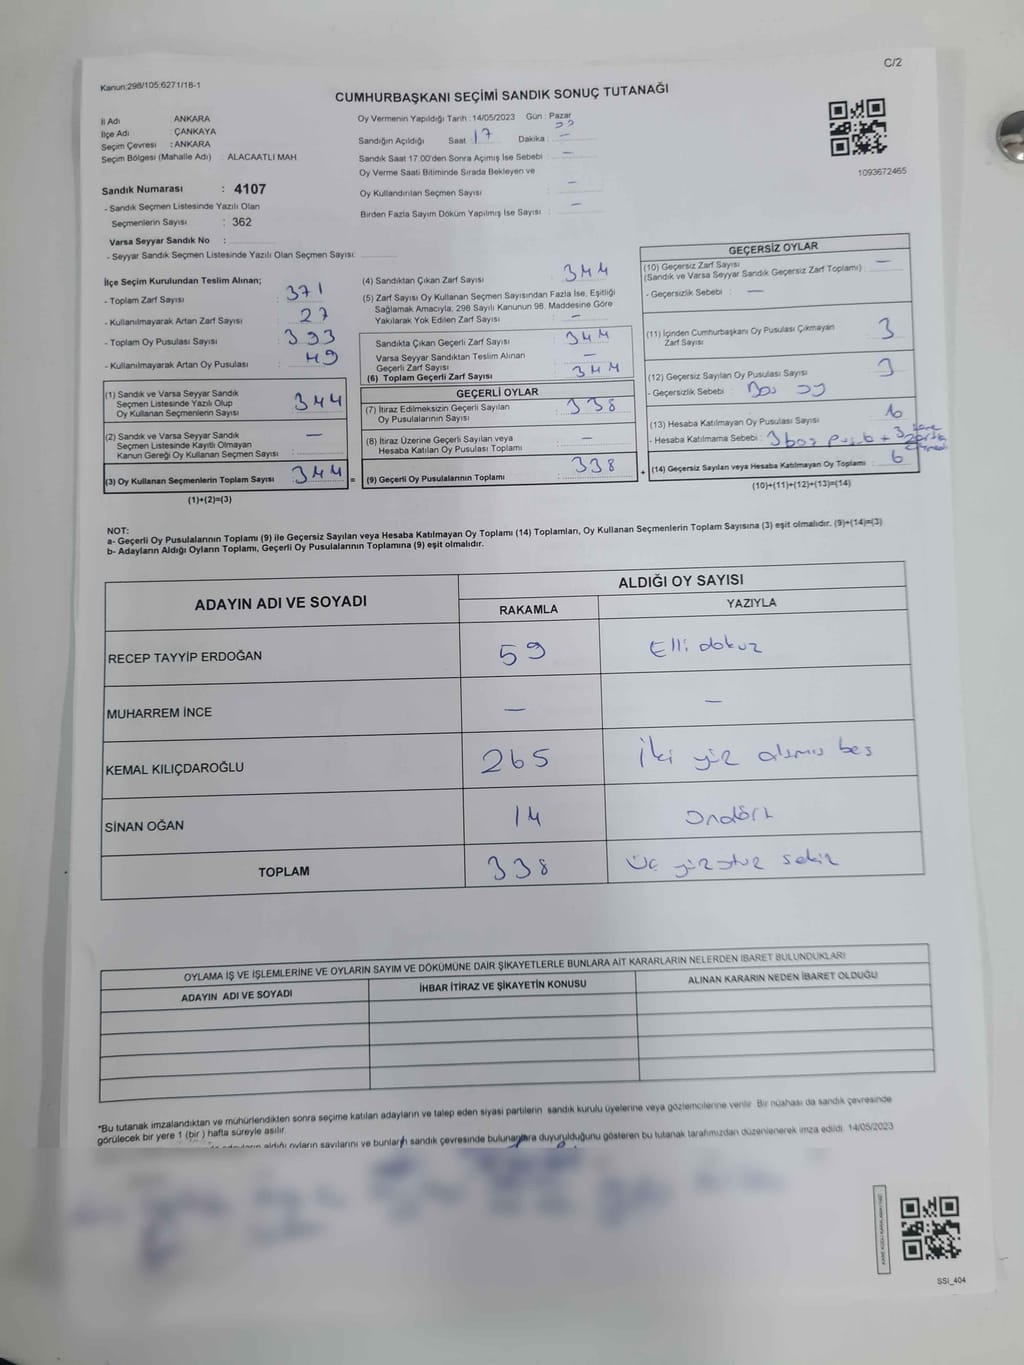 C/2
Kanun:298/105;6271/18-1
CUMHURBAŞKANI SEÇİMİ SANDIK SONUÇ TUTANAĞI
İl Adı : ANKARA
İlçe Adı : ÇANKAYA
Seçim Çevresi : ANKARA
Seçim Bölgesi (Mahalle Adı) : ALACAATLI MAH.
Oy Vermenin Yapıldığı Tarih : 14/05/2023 Gün : Pazar
Sandığın Açıldığı Saat : 17 Dakika : —
Sandık Saat 17.00'den Sonra Açımış İse Sebebi : —
Oy Verme Saati Bitiminde Sırada Bekleyen ve
Oy Kullandırılan Seçmen Sayısı : —
Birden Fazla Sayım Döküm Yapılmış İse Sayısı : —
1093672465
Sandık Numarası : 4107
- Sandık Seçmen Listesinde Yazılı Olan
Seçmenlerin Sayısı : 362
Varsa Seyyar Sandık No :
- Seyyar Sandık Seçmen Listesinde Yazılı Olan Seçmen Sayısı:
İlçe Seçim Kurulundan Teslim Alınan;
- Toplam Zarf Sayısı : 371
- Kullanılmayarak Artan Zarf Sayısı : 27
- Toplam Oy Pusulası Sayısı : 393
- Kullanılmayarak Artan Oy Pusulası : 49
(1) Sandık ve Varsa Seyyar Sandık
Seçmen Listesinde Yazılı Olup
Oy Kullanan Seçmenlerin Sayısı : 344
(2) Sandık ve Varsa Seyyar Sandık
Seçmen Listesinde Kayıtlı Olmayan
Kanun Gereği Oy Kullanan Seçmen Sayısı : —
(3) Oy Kullanan Seçmenlerin Toplam Sayısı : 344
(1)+(2)=(3)
=
(4) Sandıktan Çıkan Zarf Sayısı : 344
(5) Zarf Sayısı Oy Kullanan Seçmen Sayısından Fazla İse, Eşitliği
Sağlamak Amacıyla, 298 Sayılı Kanunun 98. Maddesine Göre
Yakılarak Yok Edilen Zarf Sayısı : —
Sandıkta Çıkan Geçerli Zarf Sayısı : 344
Varsa Seyyar Sandıktan Teslim Alınan
Geçerli Zarf Sayısı : —
(6) Toplam Geçerli Zarf Sayısı : 344
GEÇERLİ OYLAR
(7) İtiraz Edilmeksizin Geçerli Sayılan
Oy Pusulalarının Sayısı : 338
(8) İtiraz Üzerine Geçerli Sayılan veya
Hesaba Katılan Oy Pusulası Toplamı : —
(9) Geçerli Oy Pusulalarının Toplamı : 338
+
GEÇERSİZ OYLAR
(10) Geçersiz Zarf Sayısı
(Sandık ve Varsa Seyyar Sandık Geçersiz Zarf Toplamı) : —
- Geçersizlik Sebebi : —
(11) İçinden Cumhurbaşkanı Oy Pusulası Çıkmayan
Zarf Sayısı : 3
(12) Geçersiz Sayılan Oy Pusulası Sayısı : 3
- Geçersizlik Sebebi : Boş oy
(13) Hesaba Katılmayan Oy Pusulası Sayısı
- Hesaba Katılmama Sebebi : 3 boş pusula + 3
(14) Geçersiz Sayılan veya Hesaba Katılmayan Oy Toplamı : 6
(10)+(11)+(12)+(13)=(14)
NOT:
a- Geçerli Oy Pusulalarının Toplamı (9) ile Geçersiz Sayılan veya Hesaba Katılmayan Oy Toplamı (14) Toplamları, Oy Kullanan Seçmenlerin Toplam Sayısına (3) eşit olmalıdır. (9)+(14)=(3)
b- Adayların Aldığı Oyların Toplamı, Geçerli Oy Pusulalarının Toplamına (9) eşit olmalıdır.
ADAYIN ADI VE SOYADI
ALDIĞI OY SAYISI
RAKAMLA YAZIYLA
RECEP TAYYİP ERDOĞAN 59 Elli dokuz
MUHARREM İNCE — —
KEMAL KILIÇDAROĞLU 265 İki yüz altmış beş
SİNAN OĞAN 14 Ondört
TOPLAM 338 Üç yüz otuz sekiz
OYLAMA İŞ VE İŞLEMLERİNE VE OYLARIN SAYIM VE DÖKÜMÜNE DAİR ŞİKAYETLERLE BUNLARA AİT KARARLARIN NELERDEN İBARET BULUNDUKLARI
ADAYIN ADI VE SOYADI İHBAR İTİRAZ VE ŞİKAYETİN KONUSU ALINAN KARARIN NEDEN İBARET OLDUĞU
*Bu tutanak imzalandıktan ve mühürlendikten sonra seçime katılan adayların ve talep eden siyasi partilerin sandık kurulu üyelerine veya gözlemcilerine verilir. Bir nüshası da sandık çevresinde
görülecek bir yere 1 (bir) hafta süreyle asılır.
aldığı oyların sayılarını ve bunların sandık çevresinde bulunanlara duyurulduğunu gösteren bu tutanak tarafımızdan düzenlenerek imza edildi. 14/05/2023
SSİ_404